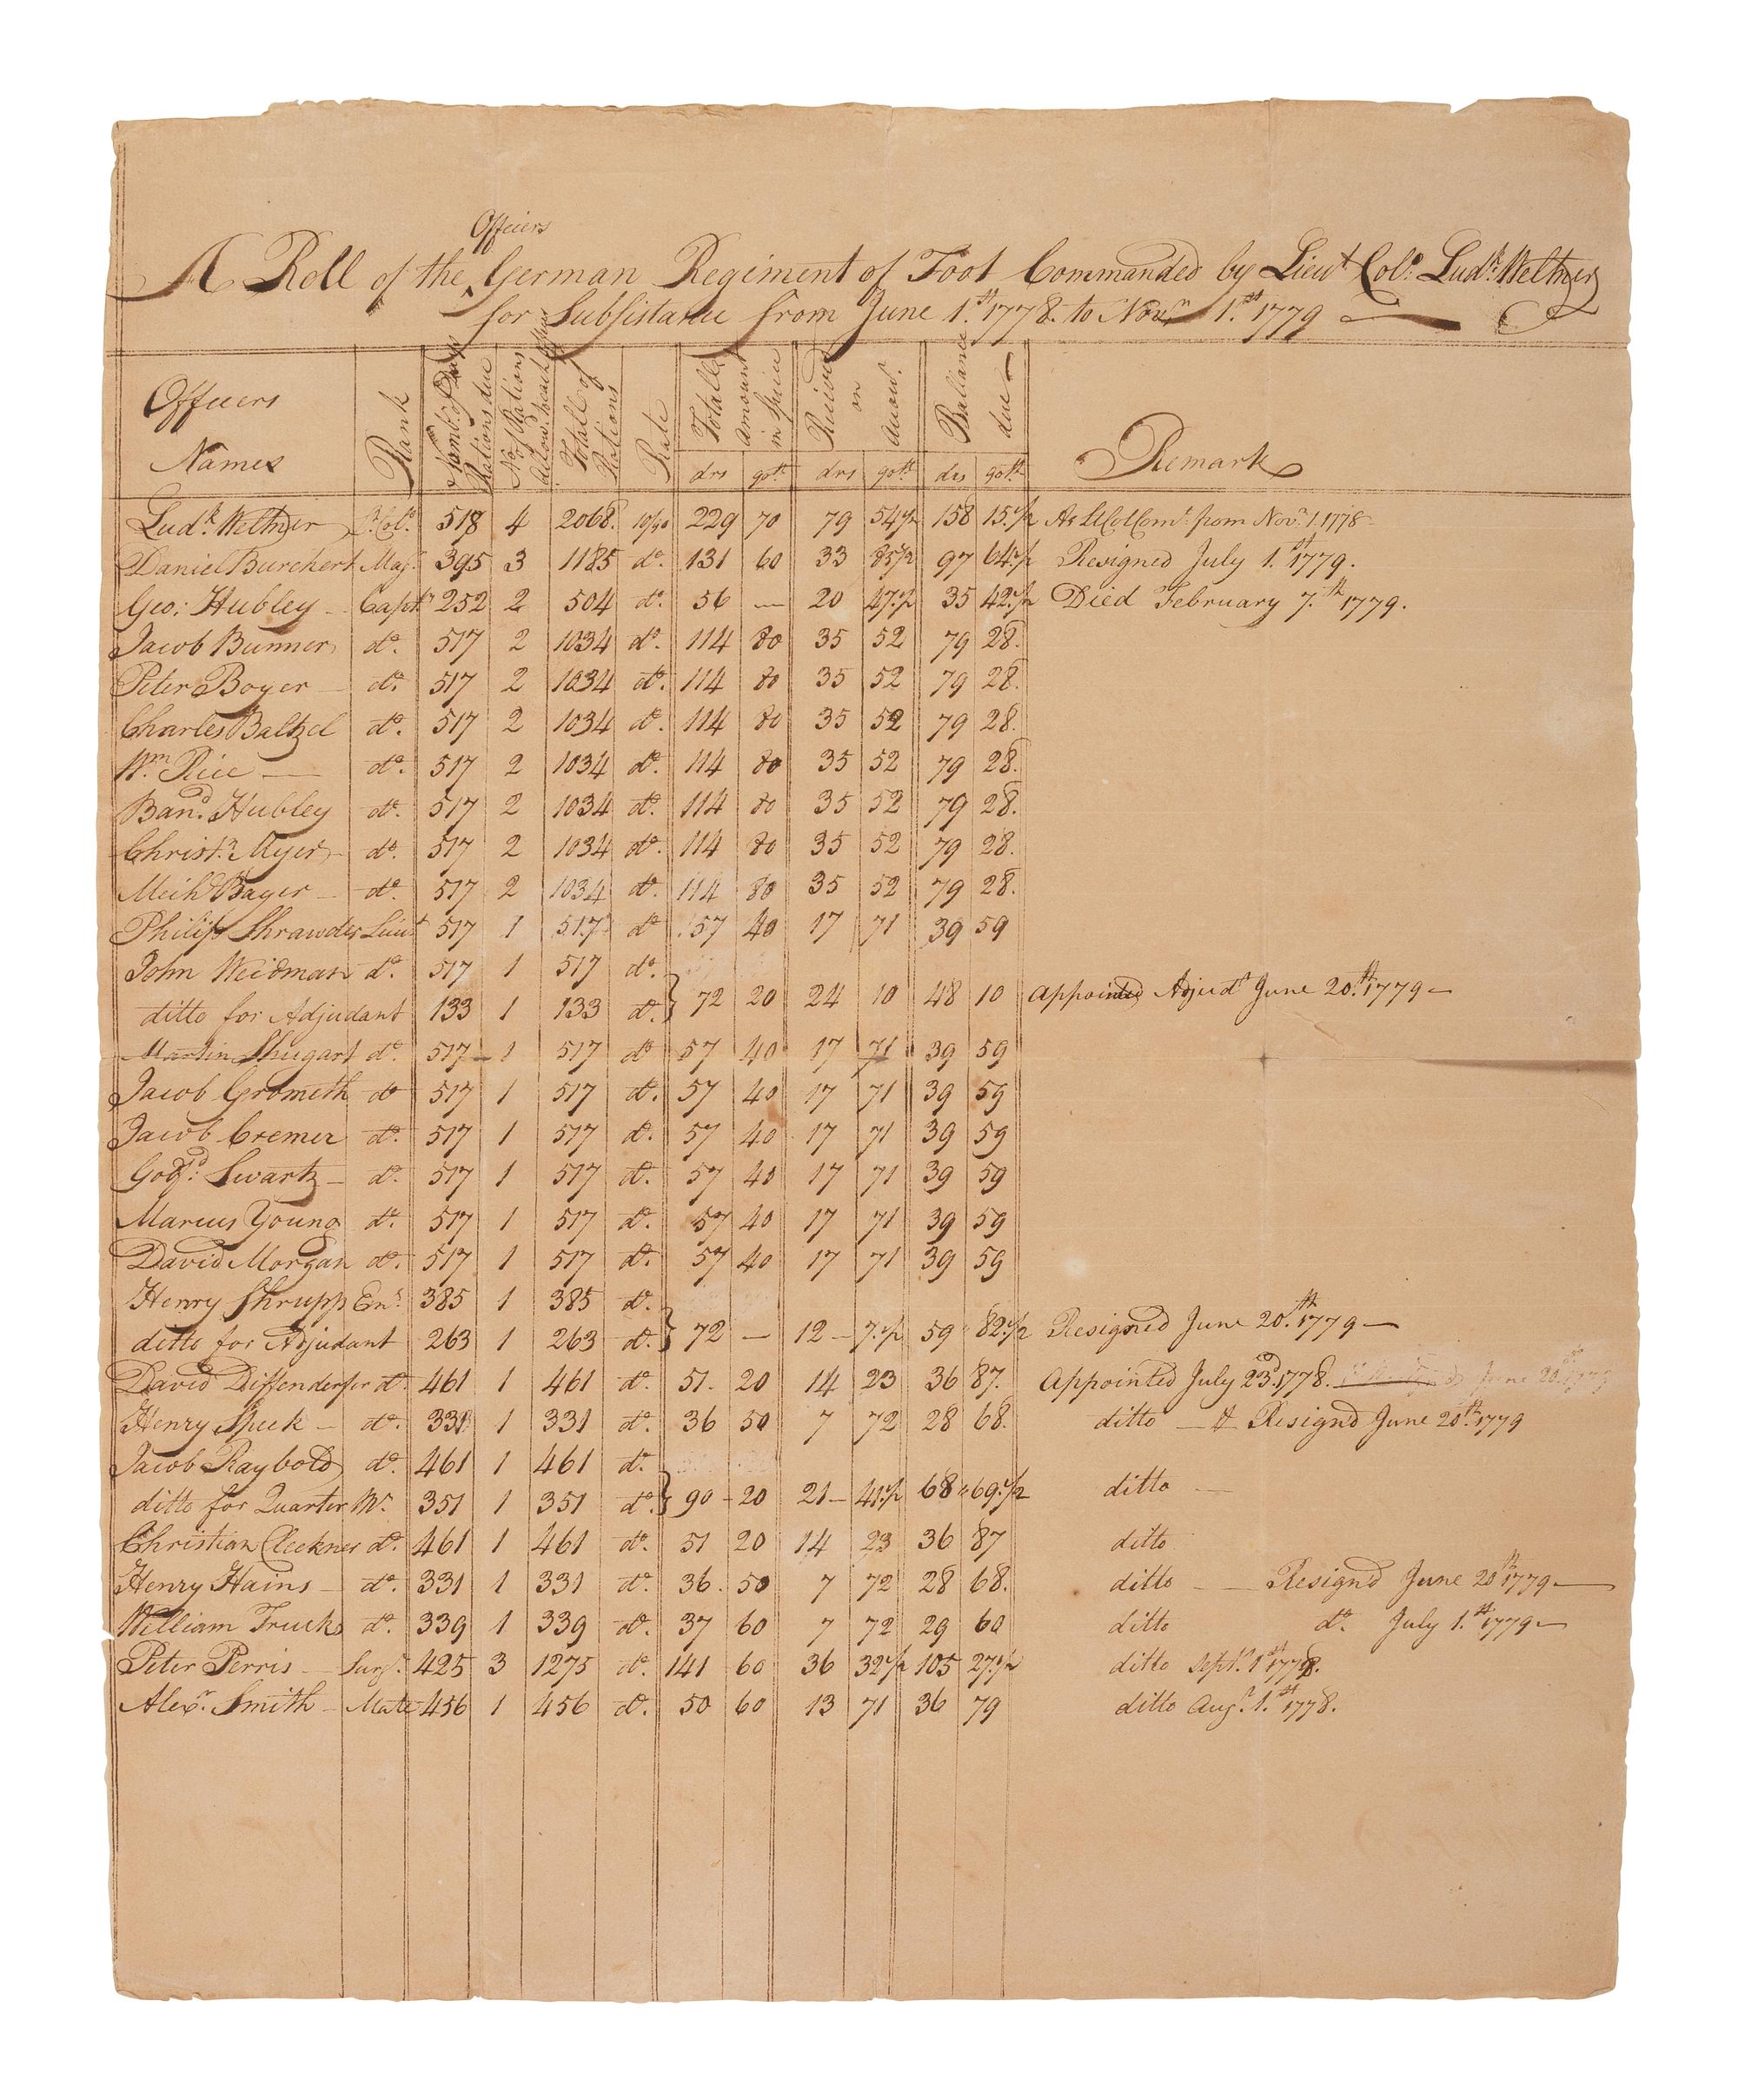 Officers
A Roll of the ^ German Regiment of Foot Commanded by Lieut. Colo. Ludk. Weltner
for Subsistance from June 1.st 1778. to Novr. 1.st 1779
Officers Names | Rank | Numbr. of Days Rations due | No. of Rations allow'd each | Totall of Rations | Rate | Totall Amount in Specie | Received on Accot. | Ballance due | Remark
drs | 90th | drs | 90th | drs | 90th
Ludk. Weltner | Lt. Colo. | 518 | 4 | 2068. | 10/90 | 229 | 70 | 79 | 54 1/2 | 158 | 15. 1/2 | As Lt Col Comt. from Novr. 1. 1778
Daniel Burchert | Maj. | 395 | 3 | 1185 | do. | 131 | 60 | 33 | 85 1/2 | 97 | 64. 1/2 | Resigned July 1.st 1779.
Geo: Hubley | Captn. | 252 | 2 | 504 | do. | 56 | — | 20 | 47. 1/2 | 35 | 42. 1/2 | Died February 7.th 1779.
Jacob Bunner | do. | 517 | 2 | 1034 | do. | 114 | 80 | 35 | 52 | 79 | 28.
Peter Boyer | do. | 517 | 2 | 1034 | do. | 114 | 80 | 35 | 52 | 79 | 28.
Charles Baltzel | do. | 517 | 2 | 1034 | do. | 114 | 80 | 35 | 52 | 79 | 28.
Wm. Rice | do. | 517 | 2 | 1034 | do. | 114 | 80 | 35 | 52 | 79 | 28.
Band. Hubley | do. | 517 | 2 | 1034 | do. | 114 | 80 | 35 | 52 | 79 | 28.
Christn. Myer | do. | 517 | 2 | 1034 | do. | 114 | 80 | 35 | 52 | 79 | 28.
Michl. Bayer | do. | 517 | 2 | 1034 | do. | 114 | 80 | 35 | 52 | 79 | 28.
Philip Shrawder | Lieut. | 517 | 1 | 517 | do | 57 | 40 | 17 | 71 | 39 | 59
John Weidman | do. | 517 | 1 | 517 | do.
ditto for Adjudant | 133 | 1 | 133 | do. } | 72 | 20 | 24 | 10 | 48 | 10 | Appointed Adjudt. June 20.th 1779 —
Martin Shugart | do. | 517 | 1 | 517 | do | 57 | 40 | 17 | 71 | 39 | 59
Jacob Grometh | do | 517 | 1 | 517 | do. | 57 | 40 | 17 | 71 | 39 | 59
Jacob Cremer | do. | 517 | 1 | 517 | do. | 57 | 40 | 17 | 71 | 39 | 59
Godfd. Swartz | do. | 517 | 1 | 517 | do. | 57 | 40 | 17 | 71 | 39 | 59
Marcus Young | do. | 517 | 1 | 517 | do. | 57 | 40 | 17 | 71 | 39 | 59
David Morgan | do. | 517 | 1 | 517 | do. | 57 | 40 | 17 | 71 | 39 | 59
Henry Shrupp | Ens. | 385 | 1 | 385 | do.
ditto for Adjudant | 263 | 1 | 263 | do. } | 72 | — | 12 | 7. 1/2 | 59 | 82. 1/2 | Resigned June 20.th 1779 —
David Diffenderfer | do. | 461 | 1 | 461 | do. | 51. | 20 | 14 | 23 | 36 | 87. | Appointed July 23d. 1778.
Henry Speck | do. | 331 | 1 | 331 | do. | 36 | 50 | 7 | 72 | 28 | 68. | ditto — & Resignd June 20.th 1779
Jacob Raybold | do. | 461 | 1 | 461 | do.
ditto for Quarter Mr. | 351 | 1 | 351 | do. } | 90 | 20 | 21 | 41. 1/2 | 68 | 69. 1/2 | ditto —
Christian Cleckner | do. | 461 | 1 | 461 | do. | 51 | 20 | 14 | 23 | 36 | 87 | ditto
Henry Hains | do. | 331 | 1 | 331 | do. | 36. | 50 | 7 | 72 | 28 | 68. | ditto — Resignd June 20th 1779 —
William Trucks | do. | 339 | 1 | 339 | do. | 37 | 60 | 7 | 72 | 29 | 60 | ditto do. July 1.st 1779 —
Peter Perris | Surgn. | 425 | 3 | 1275 | do. | 141 | 60 | 36 | 32 1/2 | 105 | 27. 1/2 | ditto Septr. 1st 1778.
Alexr. Smith | Mate | 456 | 1 | 456 | do. | 50 | 60 | 13 | 71 | 36 | 79 | ditto Augt. 1.st 1778.